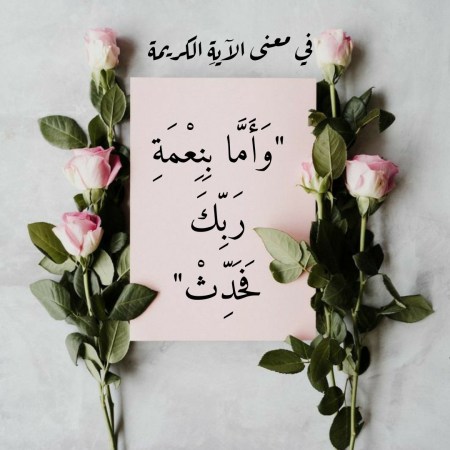 في معنى الآيةِ الكريمة
"وَأَمَّا بِنِعْمَةِ
رَبِّكَ
فَحَدِّثْ"